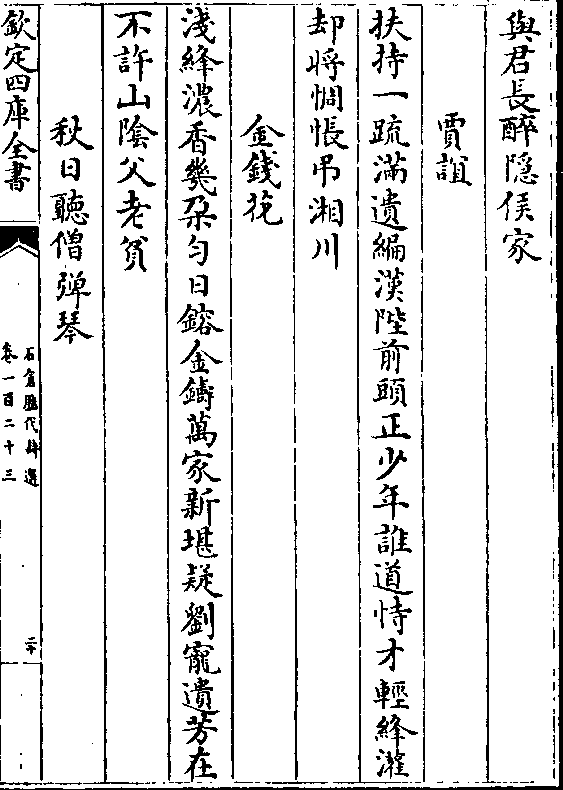 與君長醉隱侯家
賈誼
扶持一疏滿遺編漢陛前頭正少年誰道恃才輕絳灌
却將惆悵弔湘川
金錢花
淺絳濃香幾朵勻日鎔金鑄萬家新堪疑劉寵遺芳在
不許山陰父老貧
秋日聽僧彈琴
欽定四庫全書
石倉歷代詩選
卷一百二十三
二十